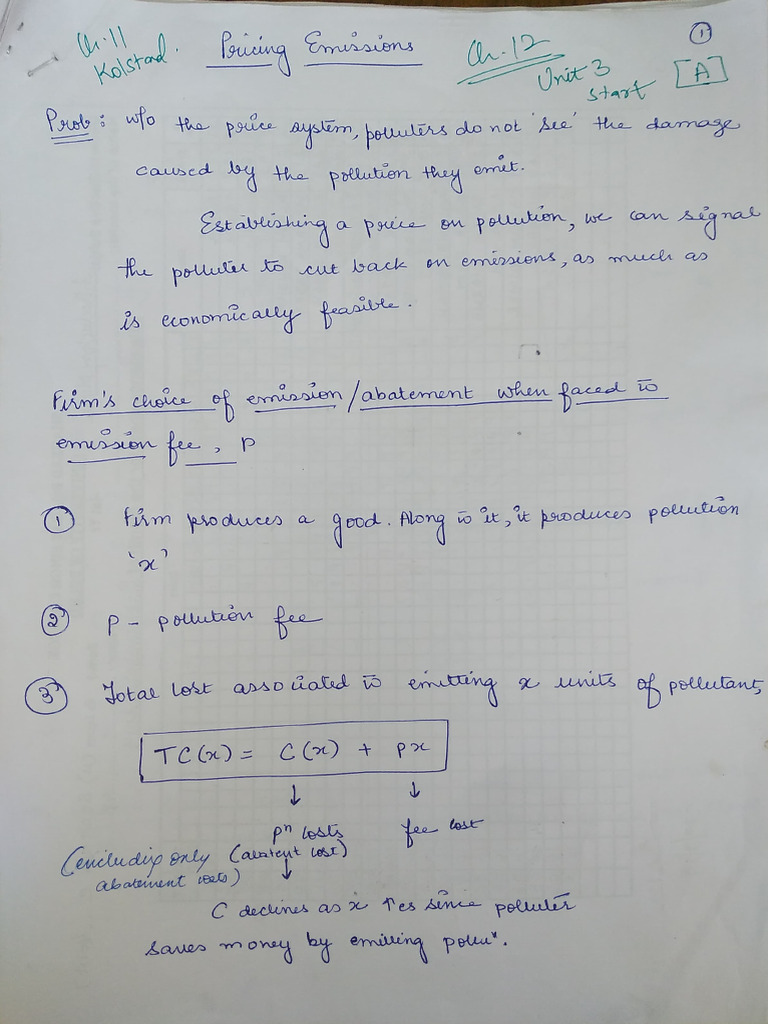 Ch. 11 Pricing Emissions Ch. 12 ①
Kolstad. Unit 3 start [A]
Prob: w/o the price system, polluters do not 'see' the damage
caused by the pollution they emit.
Establishing a price on pollution, we can signal
the polluter to cut back on emissions, as much as
is economically feasible.
Firm's choice of emission/abatement when faced w̄
emission fee, p
① Firm produces a good. Along w̄ it, it produces pollution
'x'
② p - pollution fee
③ Total cost associated w̄ emitting x units of pollutant,
TC(x) = C(x) + px
↓ ↓
pⁿ costs fee cost
(including only (abatent cost)
abatement costs) ↓
C declines as x ↑es since polluter
saves money by emitting polluⁿ.